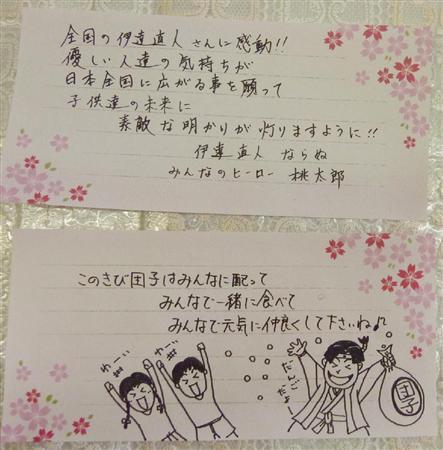 全国の伊達直人さんに感動!!
優しい人達の気持ちが
日本全国に広がる事を願って
子供達の未来に
素敵な明かりが灯りますように!!
伊達直人 ならぬ
みんなのヒーロー 桃太郎
このきび団子はみんなに配って
みんなで一緒に食べて
みんなで元気に仲良くして下さいね♪
わーい
わーい
だんごだよー
団子